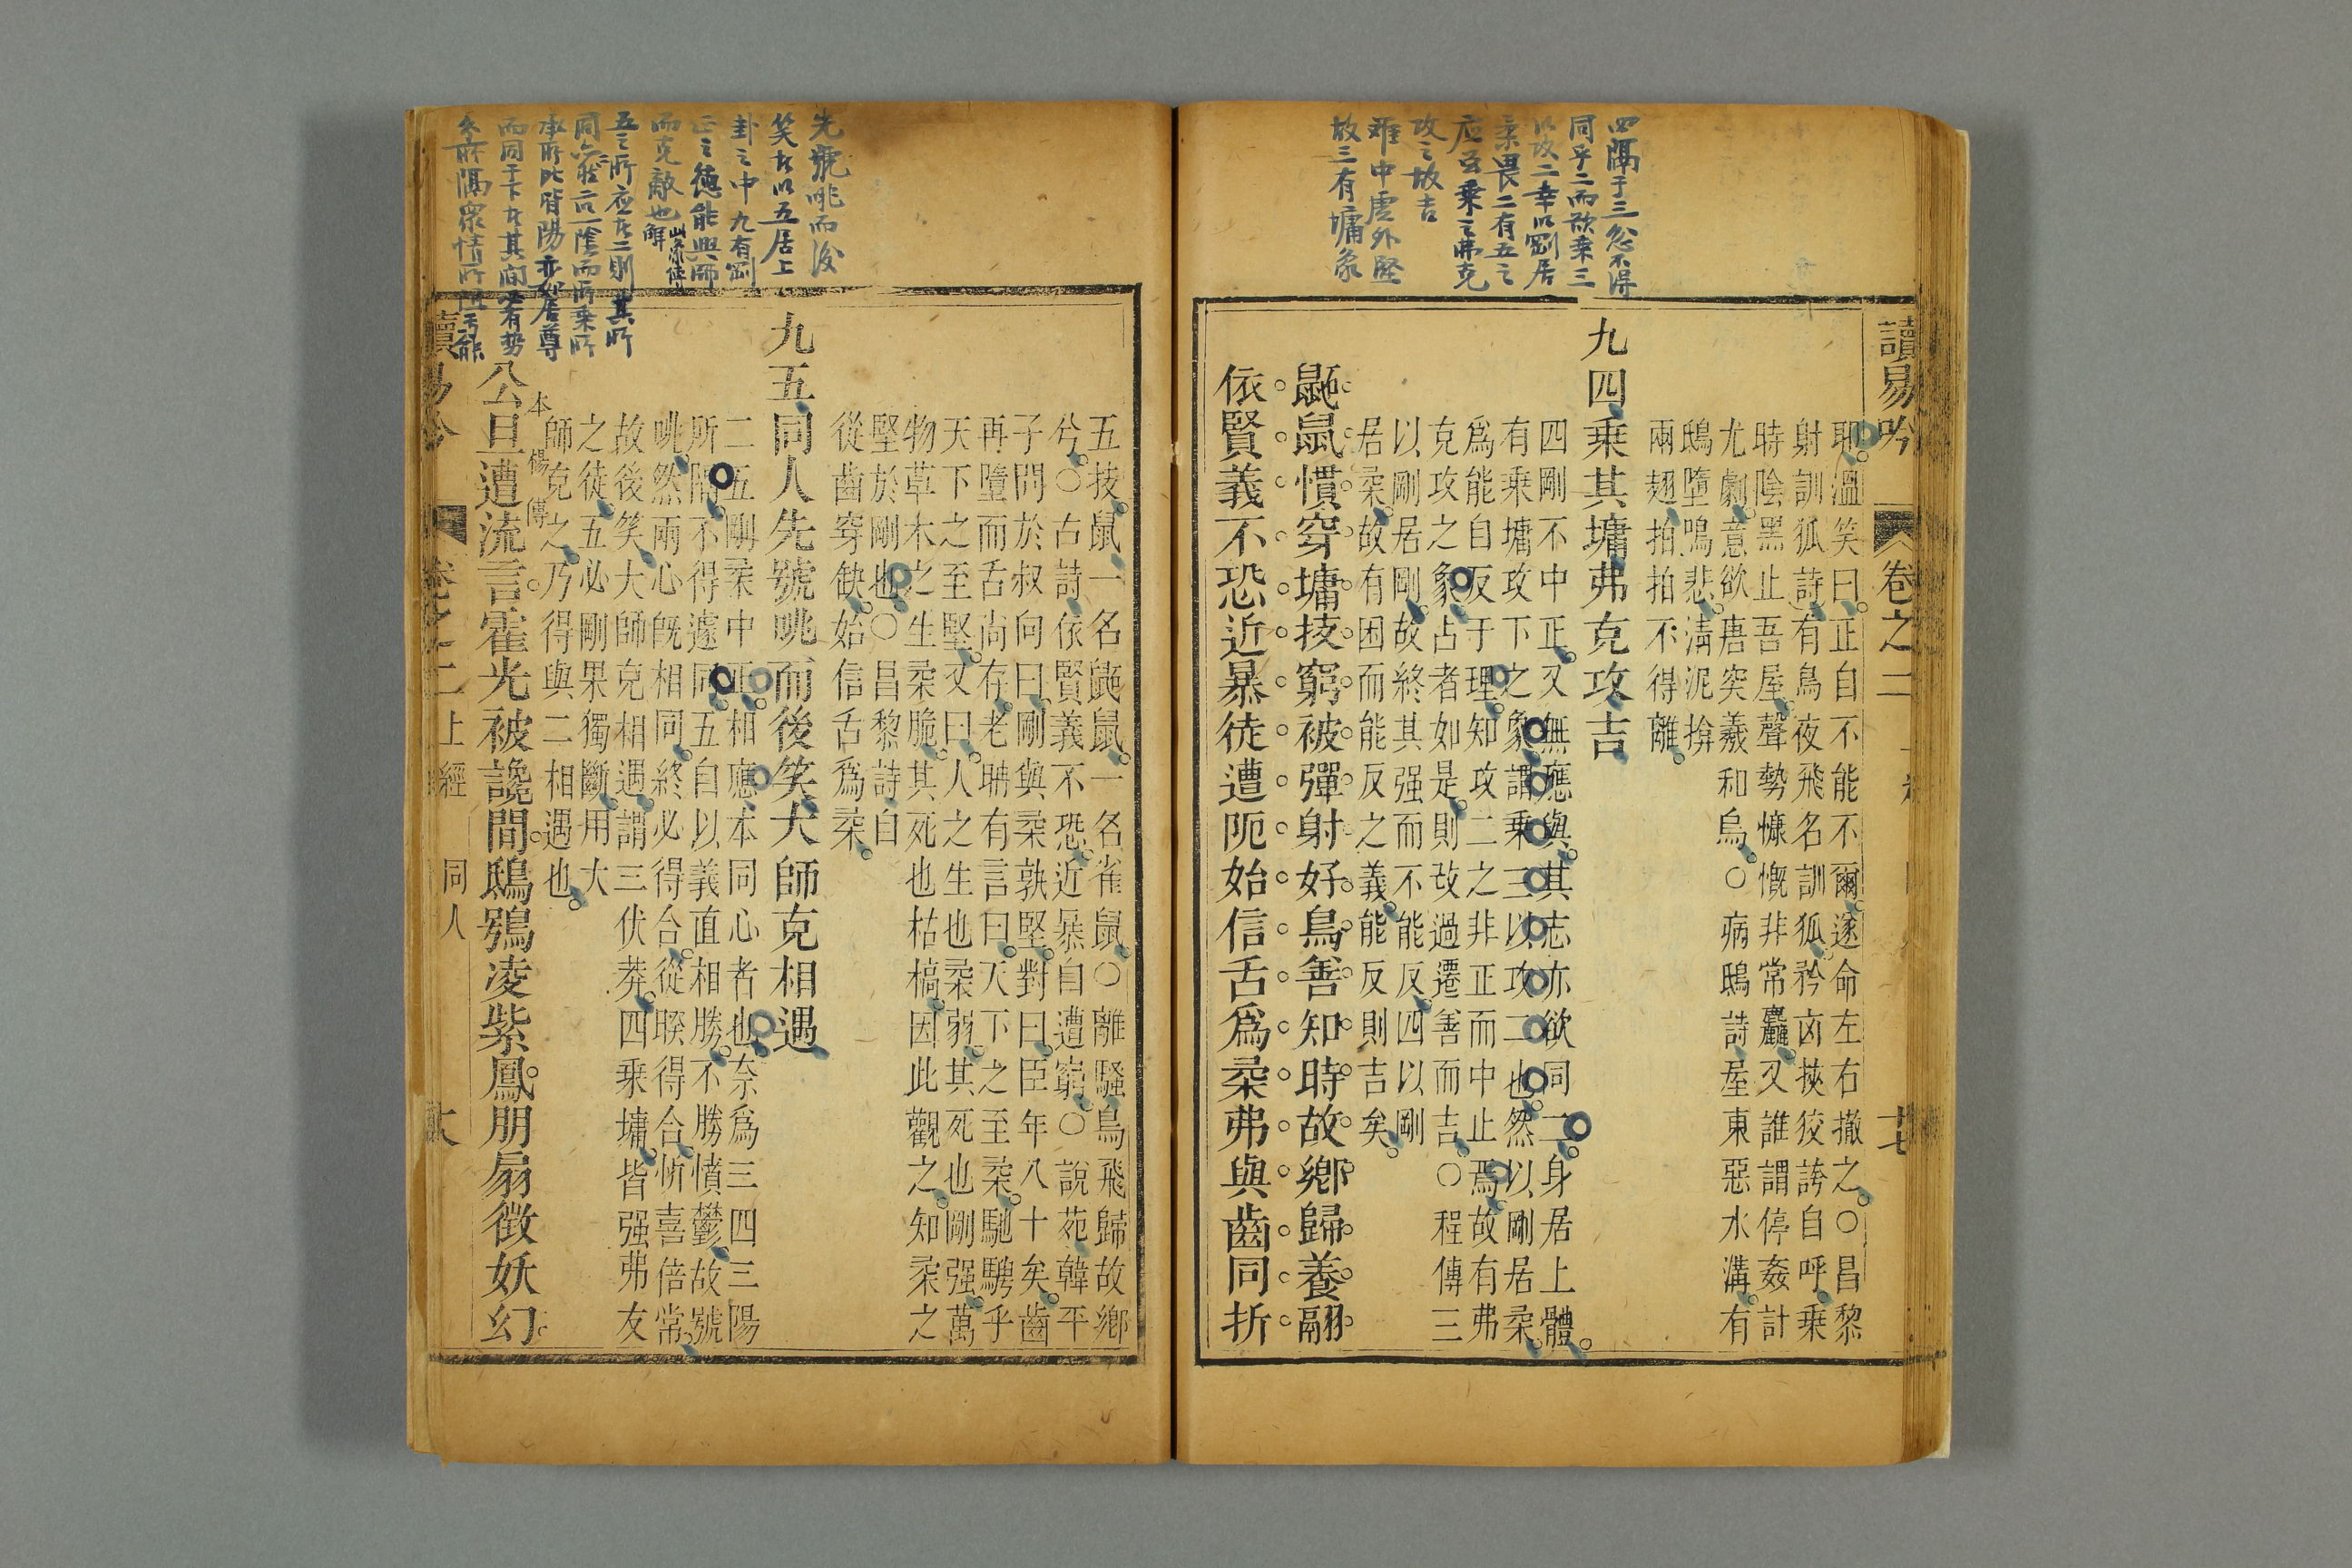 四隔于三忿不得
同乎二而欲乘三
以攻二幸以剛居
柔畏二有五之
应豈乘之弗克
攻之故吉
難中虛外堅
故三有墉象
讀易吟 卷之二
耶溫笑曰正自不能不爾遂命左右撤之○昌黎
射訓狐詩有鳥夜飛名訓狐矜凶挾狡誇自呼乗
時陰黑止吾屋聲勢慷慨非常麤又誰謂停姦計
尤劇意欲唐突羲和烏○病鴟詩屋東惡水溝有
鴟墮鳴悲淸泥揜
兩翅拍拍不得離
九四乗其墉弗克攻吉
四剛不中正又無應與其志亦欲同二身居上體
有乗墉攻下之象謂乗三以攻二也然以剛居柔
爲能自反于理知攻二之非正而中止焉故有弗
克攻之象占者如是則攻過遷善而吉○程傳三
以剛居剛故終其强而不能反四以剛
居柔故有困而能反之義能反則吉矣
鼫鼠慣穿墉技窮被彈射好鳥善知時故鄉歸養翮
依賢義不恐近暴徒遭阨始信舌爲柔弗與齒同折
先號咷而後
笑者以五居上
卦之中九有剛
正之德能與師
而克敵也
五之所应在二則其所
同六爻一陰而所乘所
承所比皆陽亦
而同于下者其間
五技鼠一名鼫鼠一名雀鼠○離騷鳥飛歸故鄉
兮○古詩依賢義不恐近暴自遭窮○說苑韓平
子問於叔向曰剛與柔孰堅對曰臣年八十矣齒
再墮而舌尚存老聃有言曰天下之至柔馳騁乎
天下之至堅又曰人之生也柔弱其死也剛强萬
物草木之生柔脆其死也枯槁因此觀之知柔之
堅於剛也○昌黎詩自
從齒穿缺始信舌爲柔
九五同人先號咷而後笑大師克相遇
二五剛柔中正相應本同心者也奈爲三四三陽
所隔不得遽同五自以義直相勝不勝憤鬱故號
咷然兩心旣相同終必得合從睽得合忻喜倍常
故後笑大師克相遇謂三伏莽四乗墉皆强弗友
之徒五必剛果獨斷用大
師克之乃得與二相遇也
本
傳
公旦遭流言霍光被讒間鴟鴞凌紫鳳朋扇徴妖幻
上經 同人